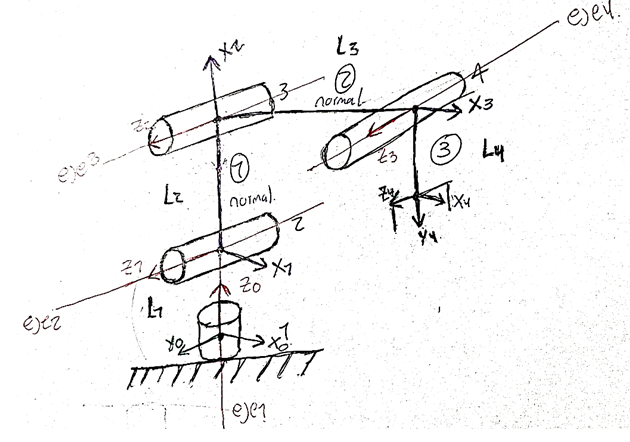 eje4.
X2
L3
2
normal
3
4
X3
Z2
eje3
Z3
3
L4
1
L2
normal.
Z4
X4
Y4
2
Z1
X1
Z0
eje2
L1
1
Y0
X0
eje1